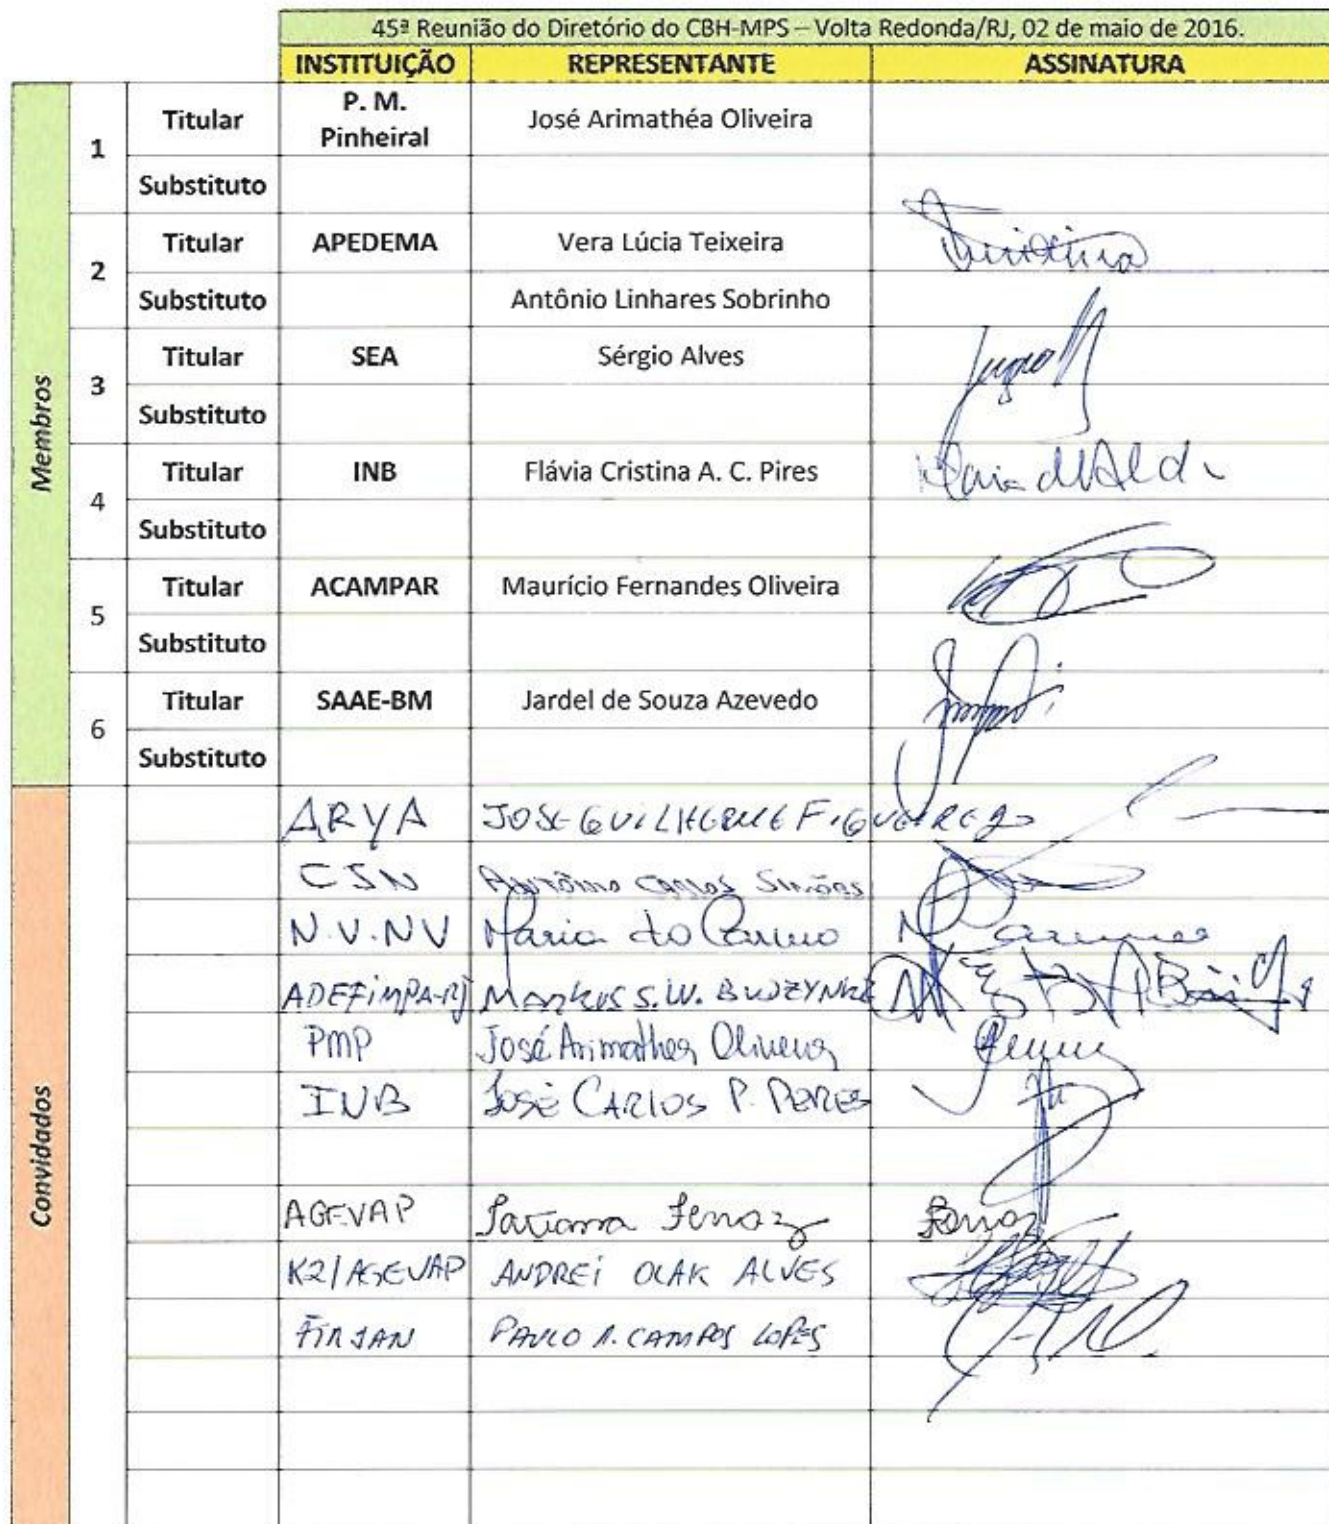 45ª Reunião do Diretório do CBH-MPS – Volta Redonda/RJ, 02 de maio de 2016.
INSTITUIÇÃO REPRESENTANTE ASSINATURA
Membros
1 Titular P. M. Pinheiral José Arimathéa Oliveira
Substituto
2 Titular APEDEMA Vera Lúcia Teixeira
Substituto Antônio Linhares Sobrinho
3 Titular SEA Sérgio Alves
Substituto
4 Titular INB Flávia Cristina A. C. Pires
Substituto
5 Titular ACAMPAR Maurício Fernandes Oliveira
Substituto
6 Titular SAAE-BM Jardel de Souza Azevedo
Substituto
Convidados
ARYA JOSE GUILHERME FIGUEIREDO
CSN Antônio Carlos Simões
N.V.NV Maria do Carmo M Carmo
ADEFIMPA-RJ Markus S.W. BUDZYNKZ
PMP José Arimathea Oliveira
INB José CARLOS P. PERES
AGEVAP Tatiana Ferraz Ferraz
K2/AGEVAP ANDREI OLAK ALVES
FIRJAN PAULO R. CAMPOS LOPES